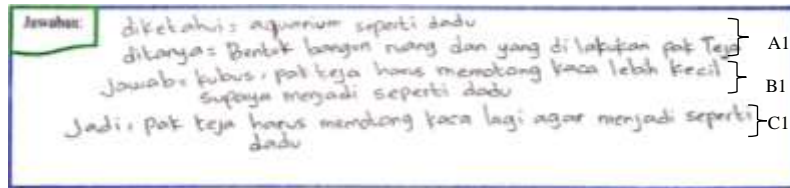 Jawaban:
diketahui = aquarium seperti dadu
ditanya = Bentuk bangun ruang dan yang di lakukan pak Teja
A1
Jawab = kubus, pak teja harus memotong kaca lebih kecil
supaya menjadi seperti dadu
B1
Jadi, pak teja harus memotong kaca lagi agar menjadi seperti
dadu
C1